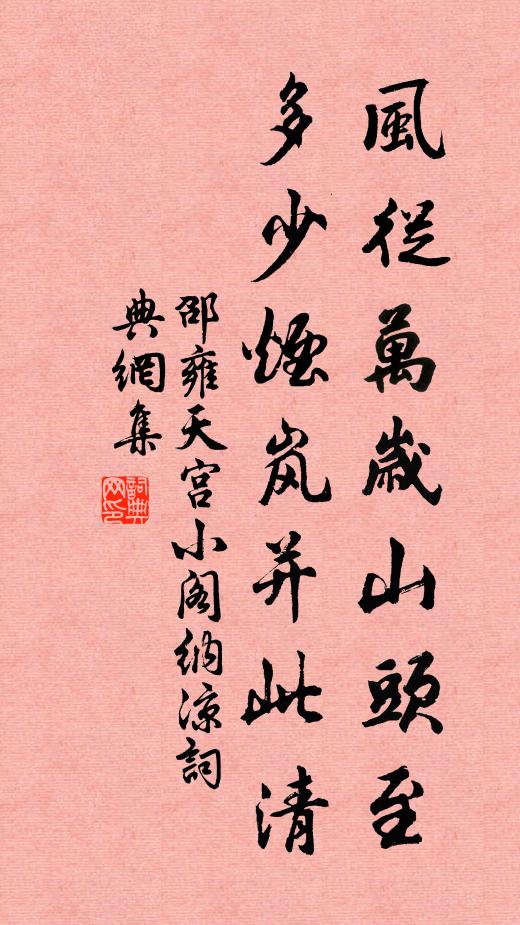 風從萬歲山頭至
多少煙岚并此清
邵雍天宮小閣納涼詞
典網集
詞典網印